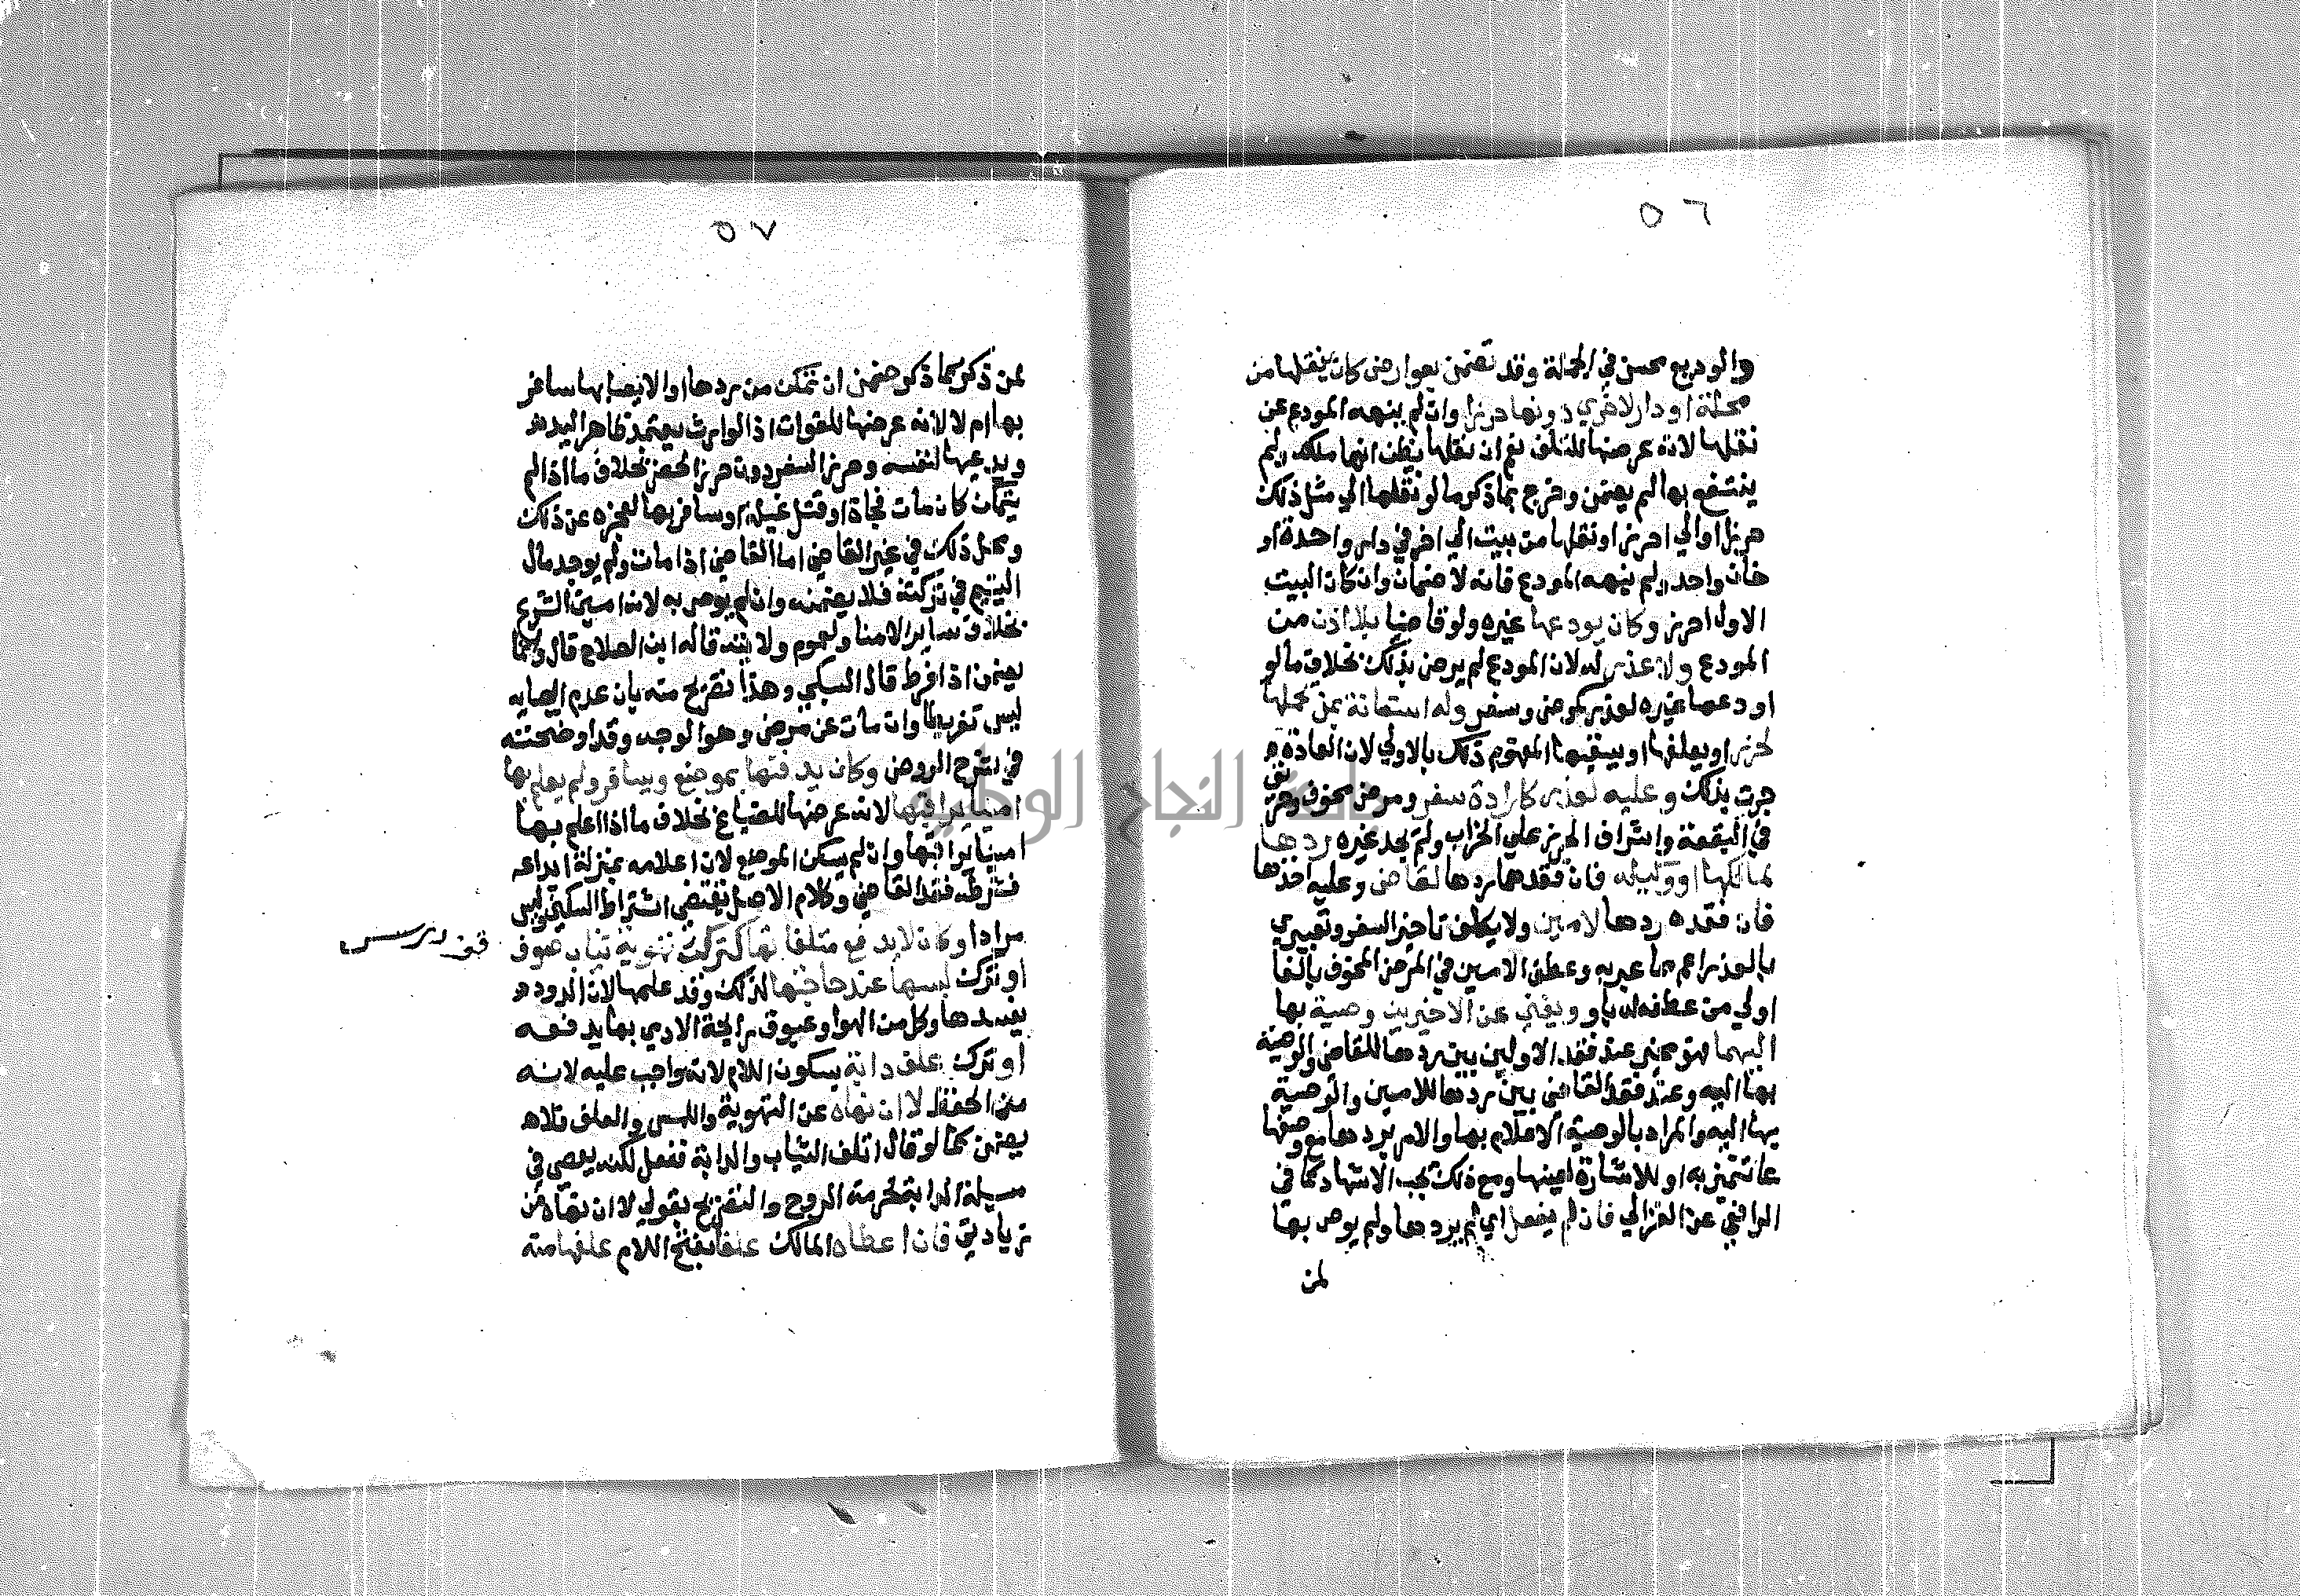 ٥٦
والوديع محسن في الجملة وقد تضمن بعوارض كان ينقلها من
محلة او دار لاخري دونها حرزا وان لم ينهه المودع عن
نقلها لانه عرضها للتلف نعم ان نقلها يظن انها ملكه ولم
ينتفع بها لم يضمن وخرج بما ذكر ما لو نقلها الي مثل ذلك
حرزا او الي احرز او نقلها من بيت الي اخر في دار واحدة او
خان واحد ولم ينهه المودع فانه لا ضمان وان كان البيت
الاول احرز وكان يودعها غيره ولو قاضيا بلا اذن من
المودع ولا عذر له لان المودع لم يرض بذلك بخلاف ما لو
اودعها غيره لعذر كمرض وسفر وله استعانة بمن يحملها
لحرز او يعلفها او يسقيها المفهوم ذلك بالاولي لان العادة
جرت بذلك وعليه لعذر كارادة سفر ومرض مخوف وحريق
في البقعة واشراف الحرز علي الخراب ولم يجد غيره ردها
لمالكها او وكيله فان فقدهما ردها لقاض وعليه اخذها
فان فقده ردها لامين ولا يكلف تاخير السفر وتعبيري
بالعذر اعم مما عبر به وعطفي الامين في المرض المخوف بالفا
اولي من عطفه له باو ويغني عن الاخيرين وصية بها
اليهما فهو مخير عند فقد الاولين بين ردها للقاضي والوصية
بها اليه وعند فقد القاضي بين ردها للامين والوصية
بها اليه والمراد بالوصية الاعلام بها والامر بردها مع وصفها
بما تتميز به او للاشارة لعينها ومع ذلك يجب الاشهاد كما في
الرافعي عن الغزالي فان لم يفعل اي لم يردها ولم يوص بها
لمن
٥٧
لمن ذكر كما ذكر ضمن ان تمكن من ردها او الايصا بها سافر
بها ام لا لانه عرضها للفوات اذ الوارث يعتمد ظاهر اليد
ويدعيها لنفسه وحرز السفر دون حرز الحضر بخلاف ما اذا لم
يتمكن كان مات فجاة او قتل غيلة او سافر بها لعجزه عن ذلك
ومحل ذلك في غير القاضي اما القاضي اذا مات ولم يوجد مال
اليتيم في تركته فلا يضمنه وان لم يوص به لانه امين الشرع
بخلاف ساير الامنا ولعموم ولايته قاله ابن الصلاح قال وانما
يضمن اذا فرط قال السبكي وهذا تصريح منه بان عدم ايصايه
ليس تفريطا وان مات عن مرض وهو الوجه وقد اوضحته
في شرح الروض وكان يدفنها بموضع ويسافر ولم يعلم بها
امينا يراقبها لانه عرضها للضياع بخلاف ما اذا اعلم بها
امينا يراقبها وان لم يسكن الموضع لان اعلامه بمنزلة ايداعه
فشرطه فقد القاضي وكلام الاصل يقتضي اشتراط السكني وليس
مرادا وكان لا يدفع متلفاتها كترك تهوية ثياب صوف
او ترك لبسها عند حاجتها لذلك وقد علمها لان الدود
يفسدها وكل من الهوا وعبوق رايحة الادمي بها يدفعه
او ترك علف دابة بسكون اللام لانه واجب عليه لانه
من الحفظ لا ان نهاه عن التهوية واللبس والعلف فلا
يضمن كما لو قال اتلف الثياب والدابة ففعل لكنه يعصي في
مسيلة الدابة لحرمة الروح والتصريح بقولي لا ان نهاه من
زيادتي فان اعطاه المالك علفا بفتح اللام علفها منه